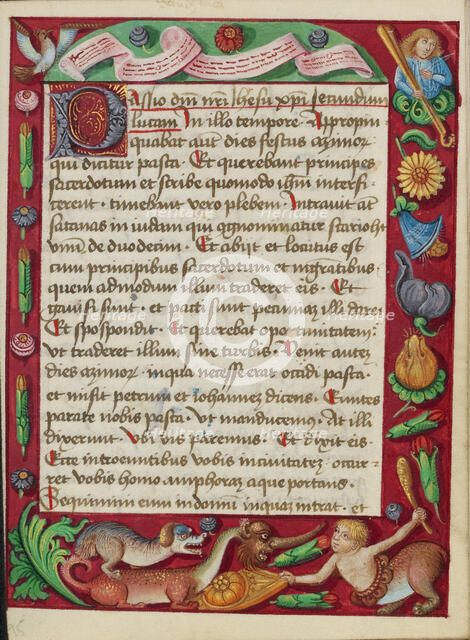 Passio dm̄ nr̄i Ihesu xp̄i secundum
lucam In illo tempore. Appropin
quabat aut̄ dies festus azimor̄
qui dicitur pasca. Et querebant principes
sacerdotum et scribe quomodo ih̄m interfi-
cerent. timebant vero plebem. Intrauit aūt
satanas in iudam qui cognominatur scarioth
vnū de duodecim. Et abijt et locutus est
cum principibus sacerdotum et magistratibus.
quem admodum illum traderet eis. Et
gauisi sunt. et pacti sunt pecuniaz illi dare.
Et spospondit. Et querebat oportunitatem
vt traderet illum sine turbis. Venit autez
dies azimoz. in qua necesse erat occidi pasca.
et misit petrum et Iohannez dicens. Euntes
parate nobis pasca. vt manducemꝰ. At illi
dixerunt. Vbi vis paremus. Et dixit eis.
Ecce introeuntibus vobis in ciuitatez. occur-
ret vobis homo amphoraz aque portans.
Sequimini eum in domū in quaz intrat. et
heritage Images
heritage Images
heritage Images
heritage Images
heritage Images